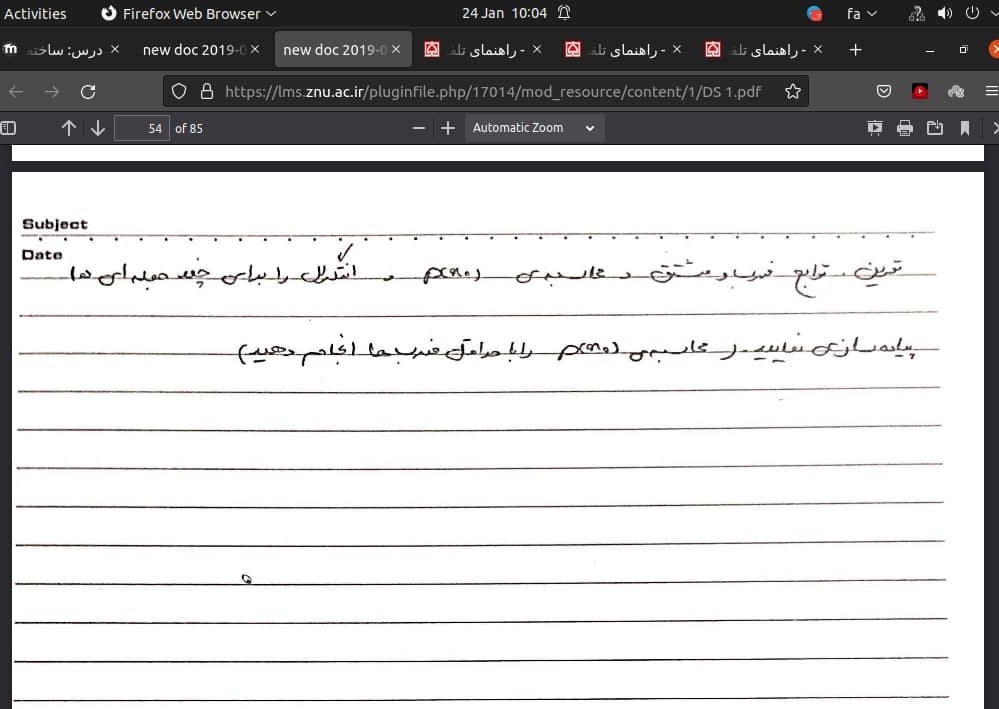 Activities Firefox Web Browser 24 Jan 10:04 fa
درس: ساخته × new doc 2019-0 × new doc 2019-0 × راهنمای تله - × راهنمای تله - × راهنمای تله - × +
https://lms.znu.ac.ir/pluginfile.php/17014/mod_resource/content/1/DS 1.pdf
54 of 85 − + Automatic Zoom
Subject
Date
تمرین. توابع ضرب و مشتق و محاسبه‌ی p(x₀) و انتگرال را برای چند جمله ای ها
پیاده سازی نمایید. (محاسبه‌ی p(x₀) را با حداقل ضرب ها انجام دهید)